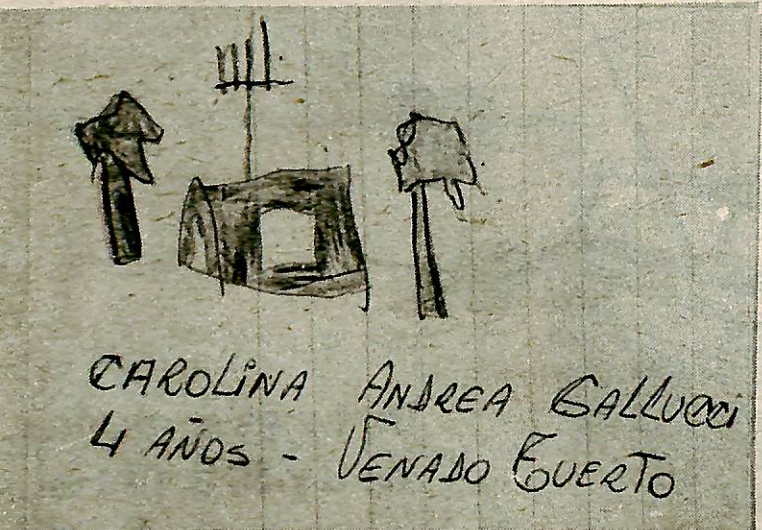 CAROLINA ANDREA GALLUCCI
4 AÑOS - VENADO TUERTO